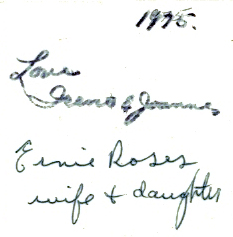 1975.
Love
Irene & Joanne
Ernie Roses
wife & daughter